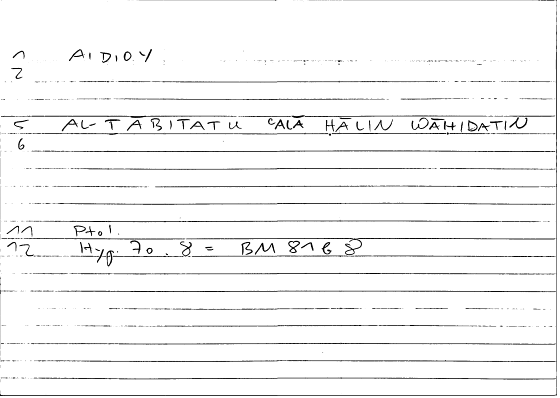 1 AIDIOY
2
5 AL-ṮĀBITATU ʿALĀ ḤĀLIN WĀḤIDATIN
6
11 Ptol.
12 Hyp. 70.8 = BM 81 b 8